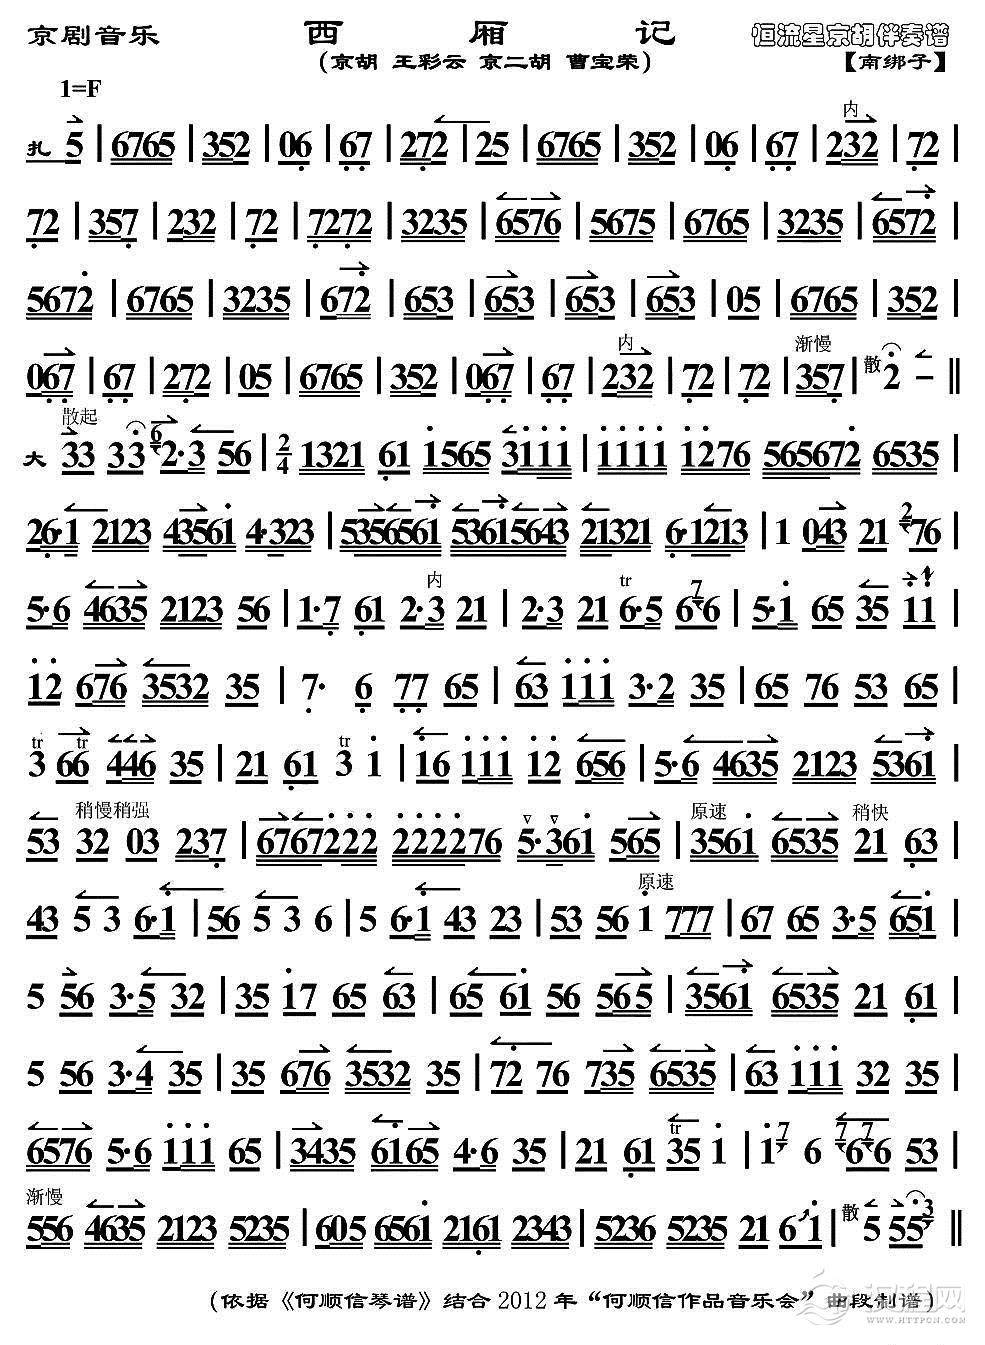 京剧音乐 西厢记 恒流星京胡伴奏谱
(京胡 王彩云 京二胡 曹宝荣) 【南绑子】
1=F
内
扎 5 | 6765 | 352 | 06 | 67 | 272 | 25 | 6765 | 352 | 06 | 67 | 232 | 72 |
72 | 357 | 232 | 72 | 7272 | 3235 | 6576 | 5675 | 6765 | 3235 | 6572 |
5672 | 6765 | 3235 | 672 | 653 | 653 | 653 | 653 | 05 | 6765 | 352 |
内 渐慢
067 | 67 | 272 | 05 | 6765 | 352 | 067 | 67 | 232 | 72 | 72 | 357 | 散 2 − ‖
散起
大 33 33 6 2·3 56 | 2/4 1321 61 1565 3111 | 1111 1276 565672 6535 |
26·1 2123 43561 4·323 | 5356561 53615643 21321 6·1213 | 1 043 21 2 76 |
内 tr 7
5·6 4635 2123 56 | 1·7 61 2·3 21 | 2·3 21 6·5 66 | 5·1 65 35 11 |
12 676 3532 35 | 7· 6 77 65 | 63 111 3·2 35 | 65 76 53 65 |
tr tr tr
3 66 446 35 | 21 61 3 1 | 16 111 12 656 | 5·6 4635 2123 5361 |
稍慢稍强 原速 稍快
53 32 03 237 | 6767222 222276 5·361 565 | 3561 6535 21 63 |
原速
43 5 3 6·1 | 56 5 3 6 | 5 6·1 43 23 | 53 56 1 777 | 67 65 3·5 651 |
5 56 3·5 32 | 35 17 65 63 | 65 61 56 565 | 3561 6535 21 61 |
5 56 3·4 35 | 35 676 3532 35 | 72 76 735 6535 | 63 111 32 35 |
tr 7 7 7
6576 5·6 111 65 | 3435 6165 4·6 35 | 21 61 35 1 | 1 6 66 53 |
渐慢
556 4635 2123 5235 | 605 6561 2161 2343 | 5236 5235 21 6 1 | 散 5 55 3 ‖
(依据《何顺信琴谱》结合2012年“何顺信作品音乐会”曲段制谱)
WWW.HTTPCN.COM